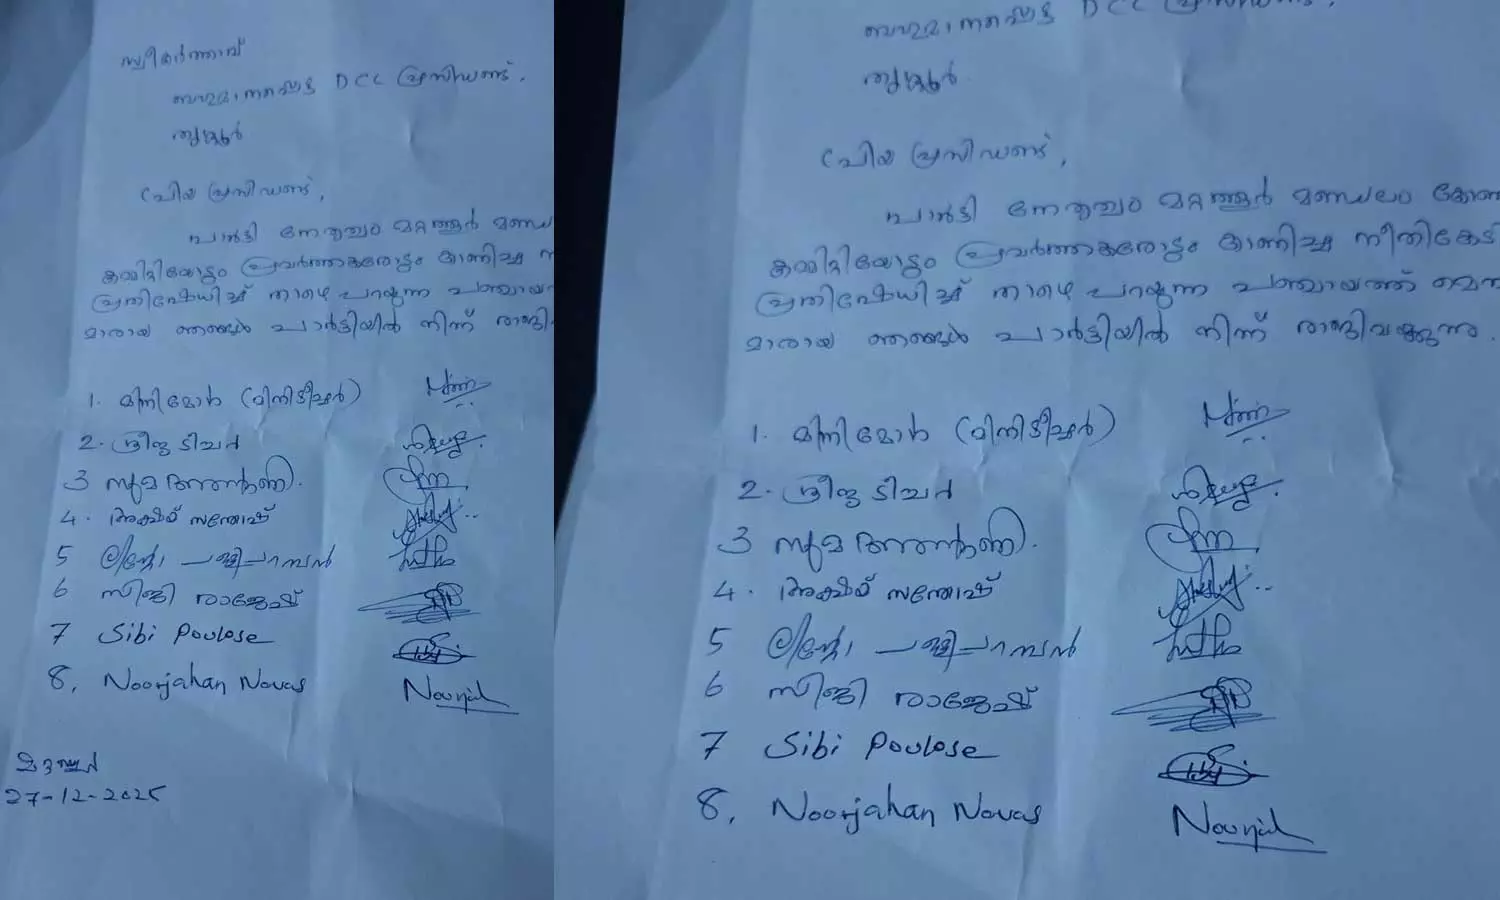 സ്വീകർത്താവ്
ബഹുമാനപ്പെട്ട DCC പ്രസിഡണ്ട്,
തൃശ്ശൂർ
പ്രിയ പ്രസിഡണ്ട്,
പാർട്ടി നേതൃത്വം മറ്റത്തൂർ മണ്ഡ
കമ്മിറ്റിയോടും പ്രവർത്തകരോടും കാണിച്ച ന
പ്രതിഷേധിച്ച് താഴെ പറയുന്ന പഞ്ചായ
മാരായ ഞങ്ങൾ പാർട്ടിയിൽ നിന്ന് രാജി
1. മിനിമോൾ (മിനിടീച്ചർ)
2. ശ്രീജ ടീച്ചർ
3 സുമ ആന്റണി.
4. അക്ഷയ് സന്തോഷ്
5 ലിന്റോ പള്ളിപറമ്പൻ
6 സിജി രാജേഷ്
7 Sibi Poulose
8. Noorjahan Navas
Noorjah
മറ്റത്തൂർ
27-12-2025
ബഹുമാനപ്പെട്ട DCC പ്രസിഡണ്ട്,
തൃശ്ശൂർ
പ്രിയ പ്രസിഡണ്ട്,
പാർട്ടി നേതൃത്വം മറ്റത്തൂർ മണ്ഡലം കോൺ
കമ്മിറ്റിയോടും പ്രവർത്തകരോടും കാണിച്ച നീതികേടി
പ്രതിഷേധിച്ച് താഴെ പറയുന്ന പഞ്ചായത്ത് മെമ
മാരായ ഞങ്ങൾ പാർട്ടിയിൽ നിന്ന് രാജിവക്കുന്നു.
1. മിനിമോൾ (മിനിടീച്ചർ)
2. ശ്രീജ ടീച്ചർ
3 സുമ ആന്റണി.
4. അക്ഷയ് സന്തോഷ്
5 ലിന്റോ പള്ളിപറമ്പൻ
6 സിജി രാജേഷ്
7 Sibi Poulose
8. Noorjahan Navas
Noorjah